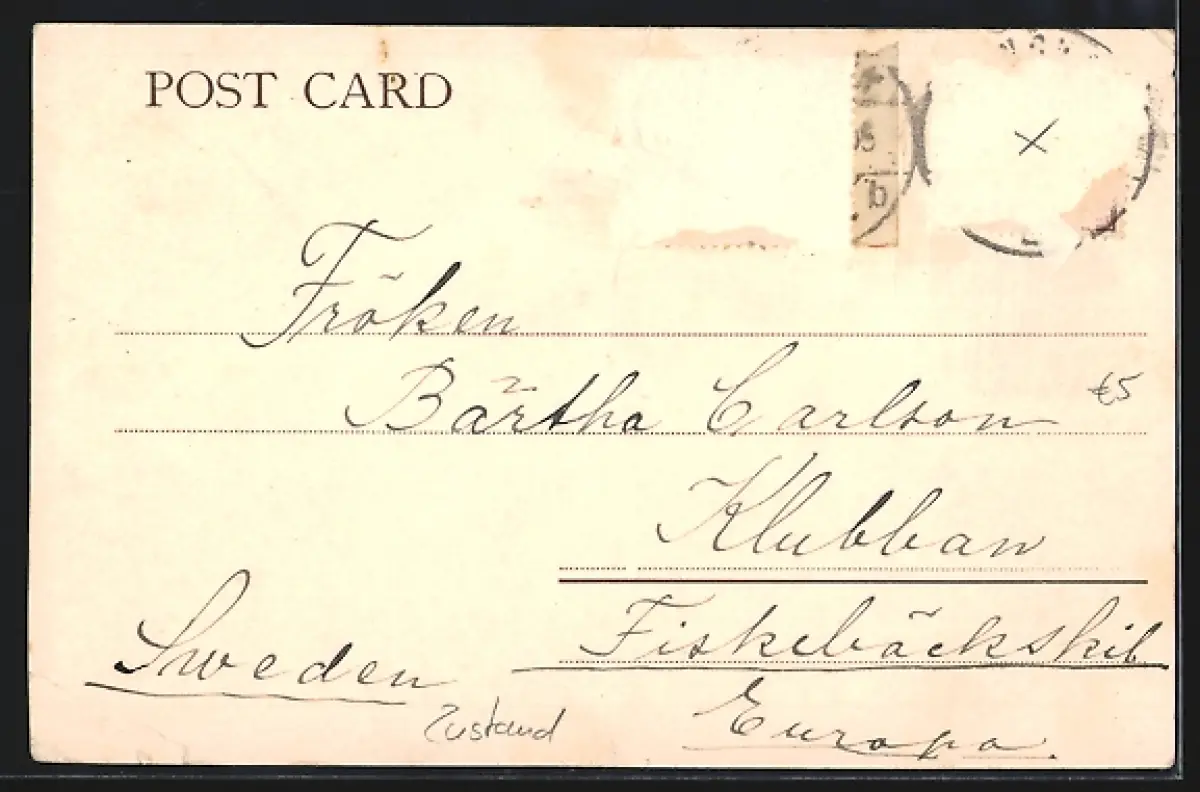 POST CARD
b
Fröken
Bärtha Carlson
€5
Klubban
Fiskebäckskil
Sweden
Europa.
Zustand